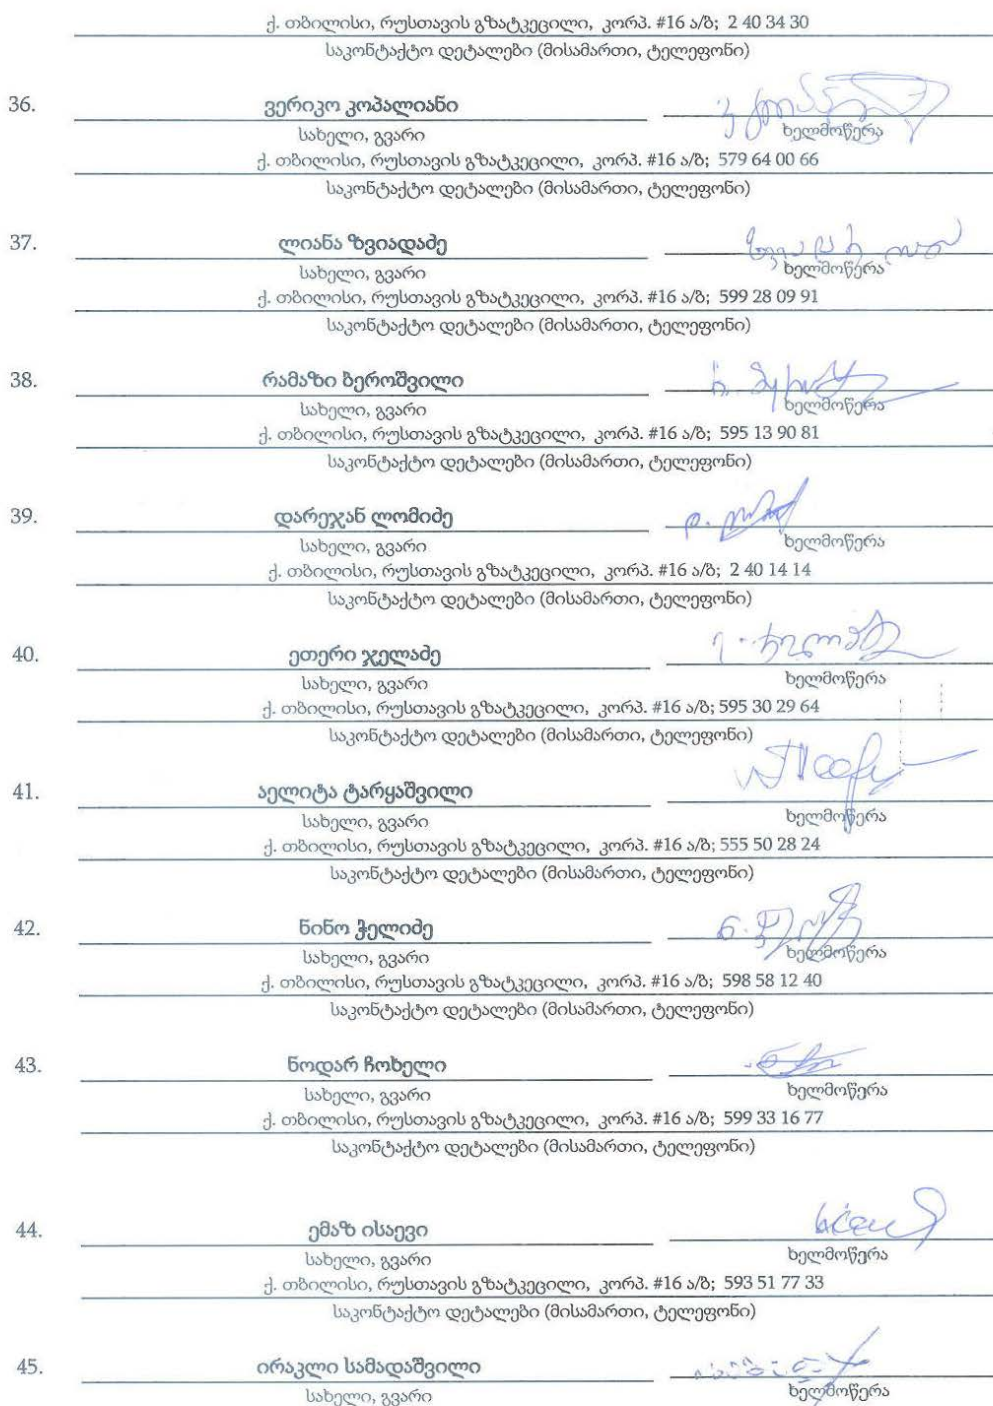 ქ. თბილისი, რუსთავის გზატკეცილი, კორპ. #16 ა/ბ; 2 40 34 30
საკონტაქტო დეტალები (მისამართი, ტელეფონი)
36. ვერიკო კოპალიანი
სახელი, გვარი ხელმოწერა
ქ. თბილისი, რუსთავის გზატკეცილი, კორპ. #16 ა/ბ; 579 64 00 66
საკონტაქტო დეტალები (მისამართი, ტელეფონი)
37. ლიანა ზვიადაძე
სახელი, გვარი ხელმოწერა
ქ. თბილისი, რუსთავის გზატკეცილი, კორპ. #16 ა/ბ; 599 28 09 91
საკონტაქტო დეტალები (მისამართი, ტელეფონი)
38. რამაზი ბეროშვილი
სახელი, გვარი ხელმოწერა
ქ. თბილისი, რუსთავის გზატკეცილი, კორპ. #16 ა/ბ; 595 13 90 81
საკონტაქტო დეტალები (მისამართი, ტელეფონი)
39. დარეჯან ლომიძე
სახელი, გვარი ხელმოწერა
ქ. თბილისი, რუსთავის გზატკეცილი, კორპ. #16 ა/ბ; 2 40 14 14
საკონტაქტო დეტალები (მისამართი, ტელეფონი)
40. ეთერი ჯელაძე
სახელი, გვარი ხელმოწერა
ქ. თბილისი, რუსთავის გზატკეცილი, კორპ. #16 ა/ბ; 595 30 29 64
საკონტაქტო დეტალები (მისამართი, ტელეფონი)
41. აელიტა ტარყაშვილი
სახელი, გვარი ხელმოწერა
ქ. თბილისი, რუსთავის გზატკეცილი, კორპ. #16 ა/ბ; 555 50 28 24
საკონტაქტო დეტალები (მისამართი, ტელეფონი)
42. ნინო ჭელიძე
სახელი, გვარი ხელმოწერა
ქ. თბილისი, რუსთავის გზატკეცილი, კორპ. #16 ა/ბ; 598 58 12 40
საკონტაქტო დეტალები (მისამართი, ტელეფონი)
43. ნოდარ ჩოხელი
სახელი, გვარი ხელმოწერა
ქ. თბილისი, რუსთავის გზატკეცილი, კორპ. #16 ა/ბ; 599 33 16 77
საკონტაქტო დეტალები (მისამართი, ტელეფონი)
44. ემაზ ისაევი
სახელი, გვარი ხელმოწერა
ქ. თბილისი, რუსთავის გზატკეცილი, კორპ. #16 ა/ბ; 593 51 77 33
საკონტაქტო დეტალები (მისამართი, ტელეფონი)
45. ირაკლი სამადაშვილი
სახელი, გვარი ხელმოწერა